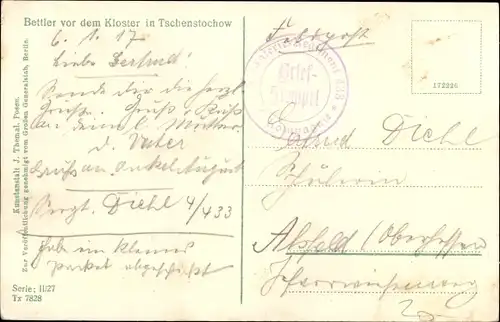 Bettler vor dem Kloster in Tschenstochow
6.1.17
Feldpost
Liebe Gertrud!
Sende dir die herzl.
Grüße. Gruß u. Kuß
an deine l. Mutter
u. Vater
Gruß an Onkel August
Sergt. Diehl 4/433
hab ein kleines
Packet abgeschickt
Serie: II/27
Tx 7828
Kunstanstalt J. Themal, Posen.
Zur Veröffentlichung genehmigt vom Großen Generalstab, Berlin.
Infanterie-Regiment 433
Brief-
Stempel
172226
Diehl
Schülerin
Alsfeld (Oberhessen)